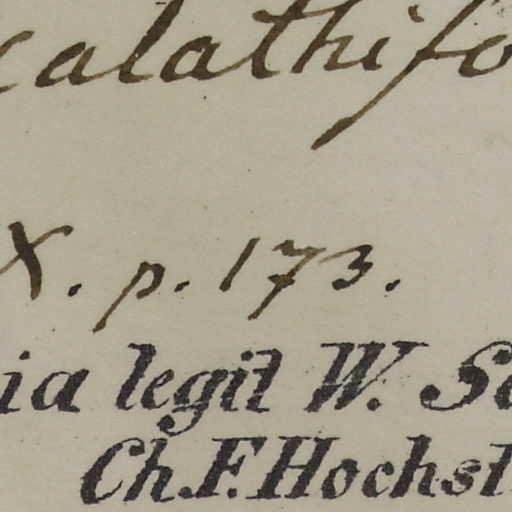 calathifo
X. p. 173.
ia legit W. Sc
Ch. F. Hochst